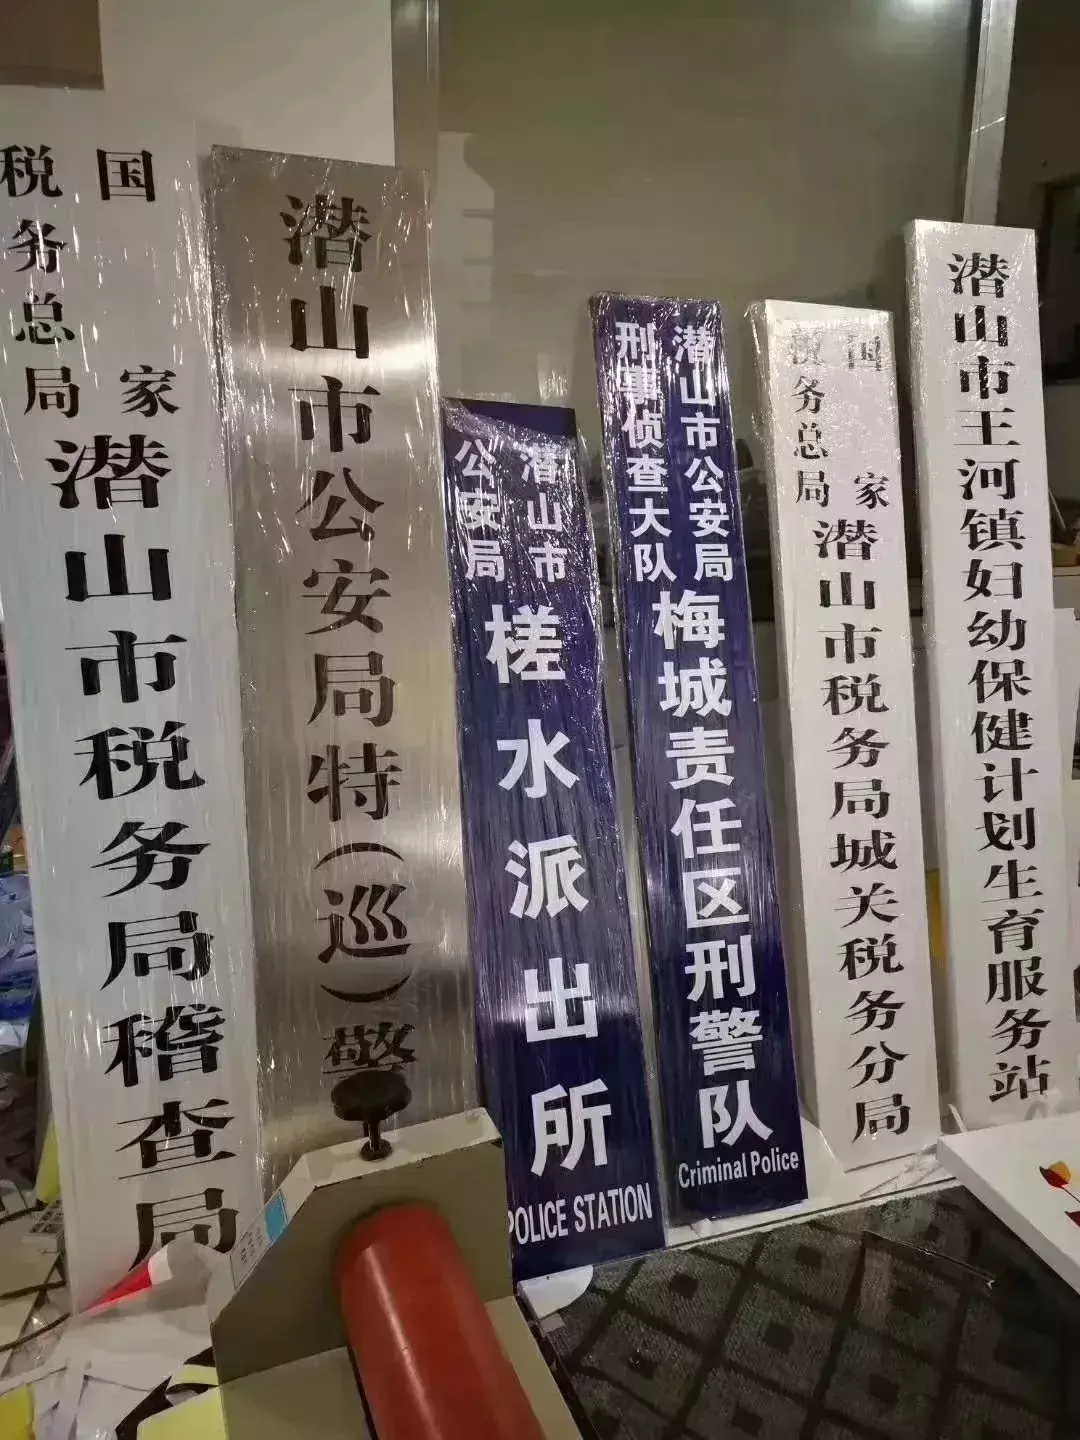 国家
税务总局
潜山市税务局稽查局
潜山市公安局特(巡)警
潜山市
公安局
槎水派出所
POLICE STATION
潜山市公安局
刑事侦查大队
梅城责任区刑警队
Criminal Police
国家
税务总局
潜山市税务局城关税务分局
潜山市王河镇妇幼保健计划生育服务站